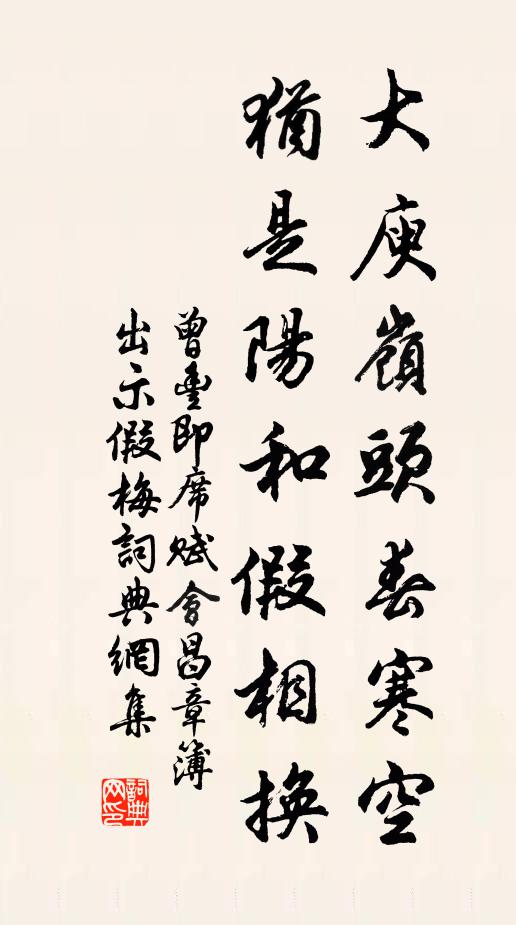 大庾嶺頭春寒空
猶是陽和假相換
曾豐即席賦會昌章簿
出示假梅詞典網集
詞典网印